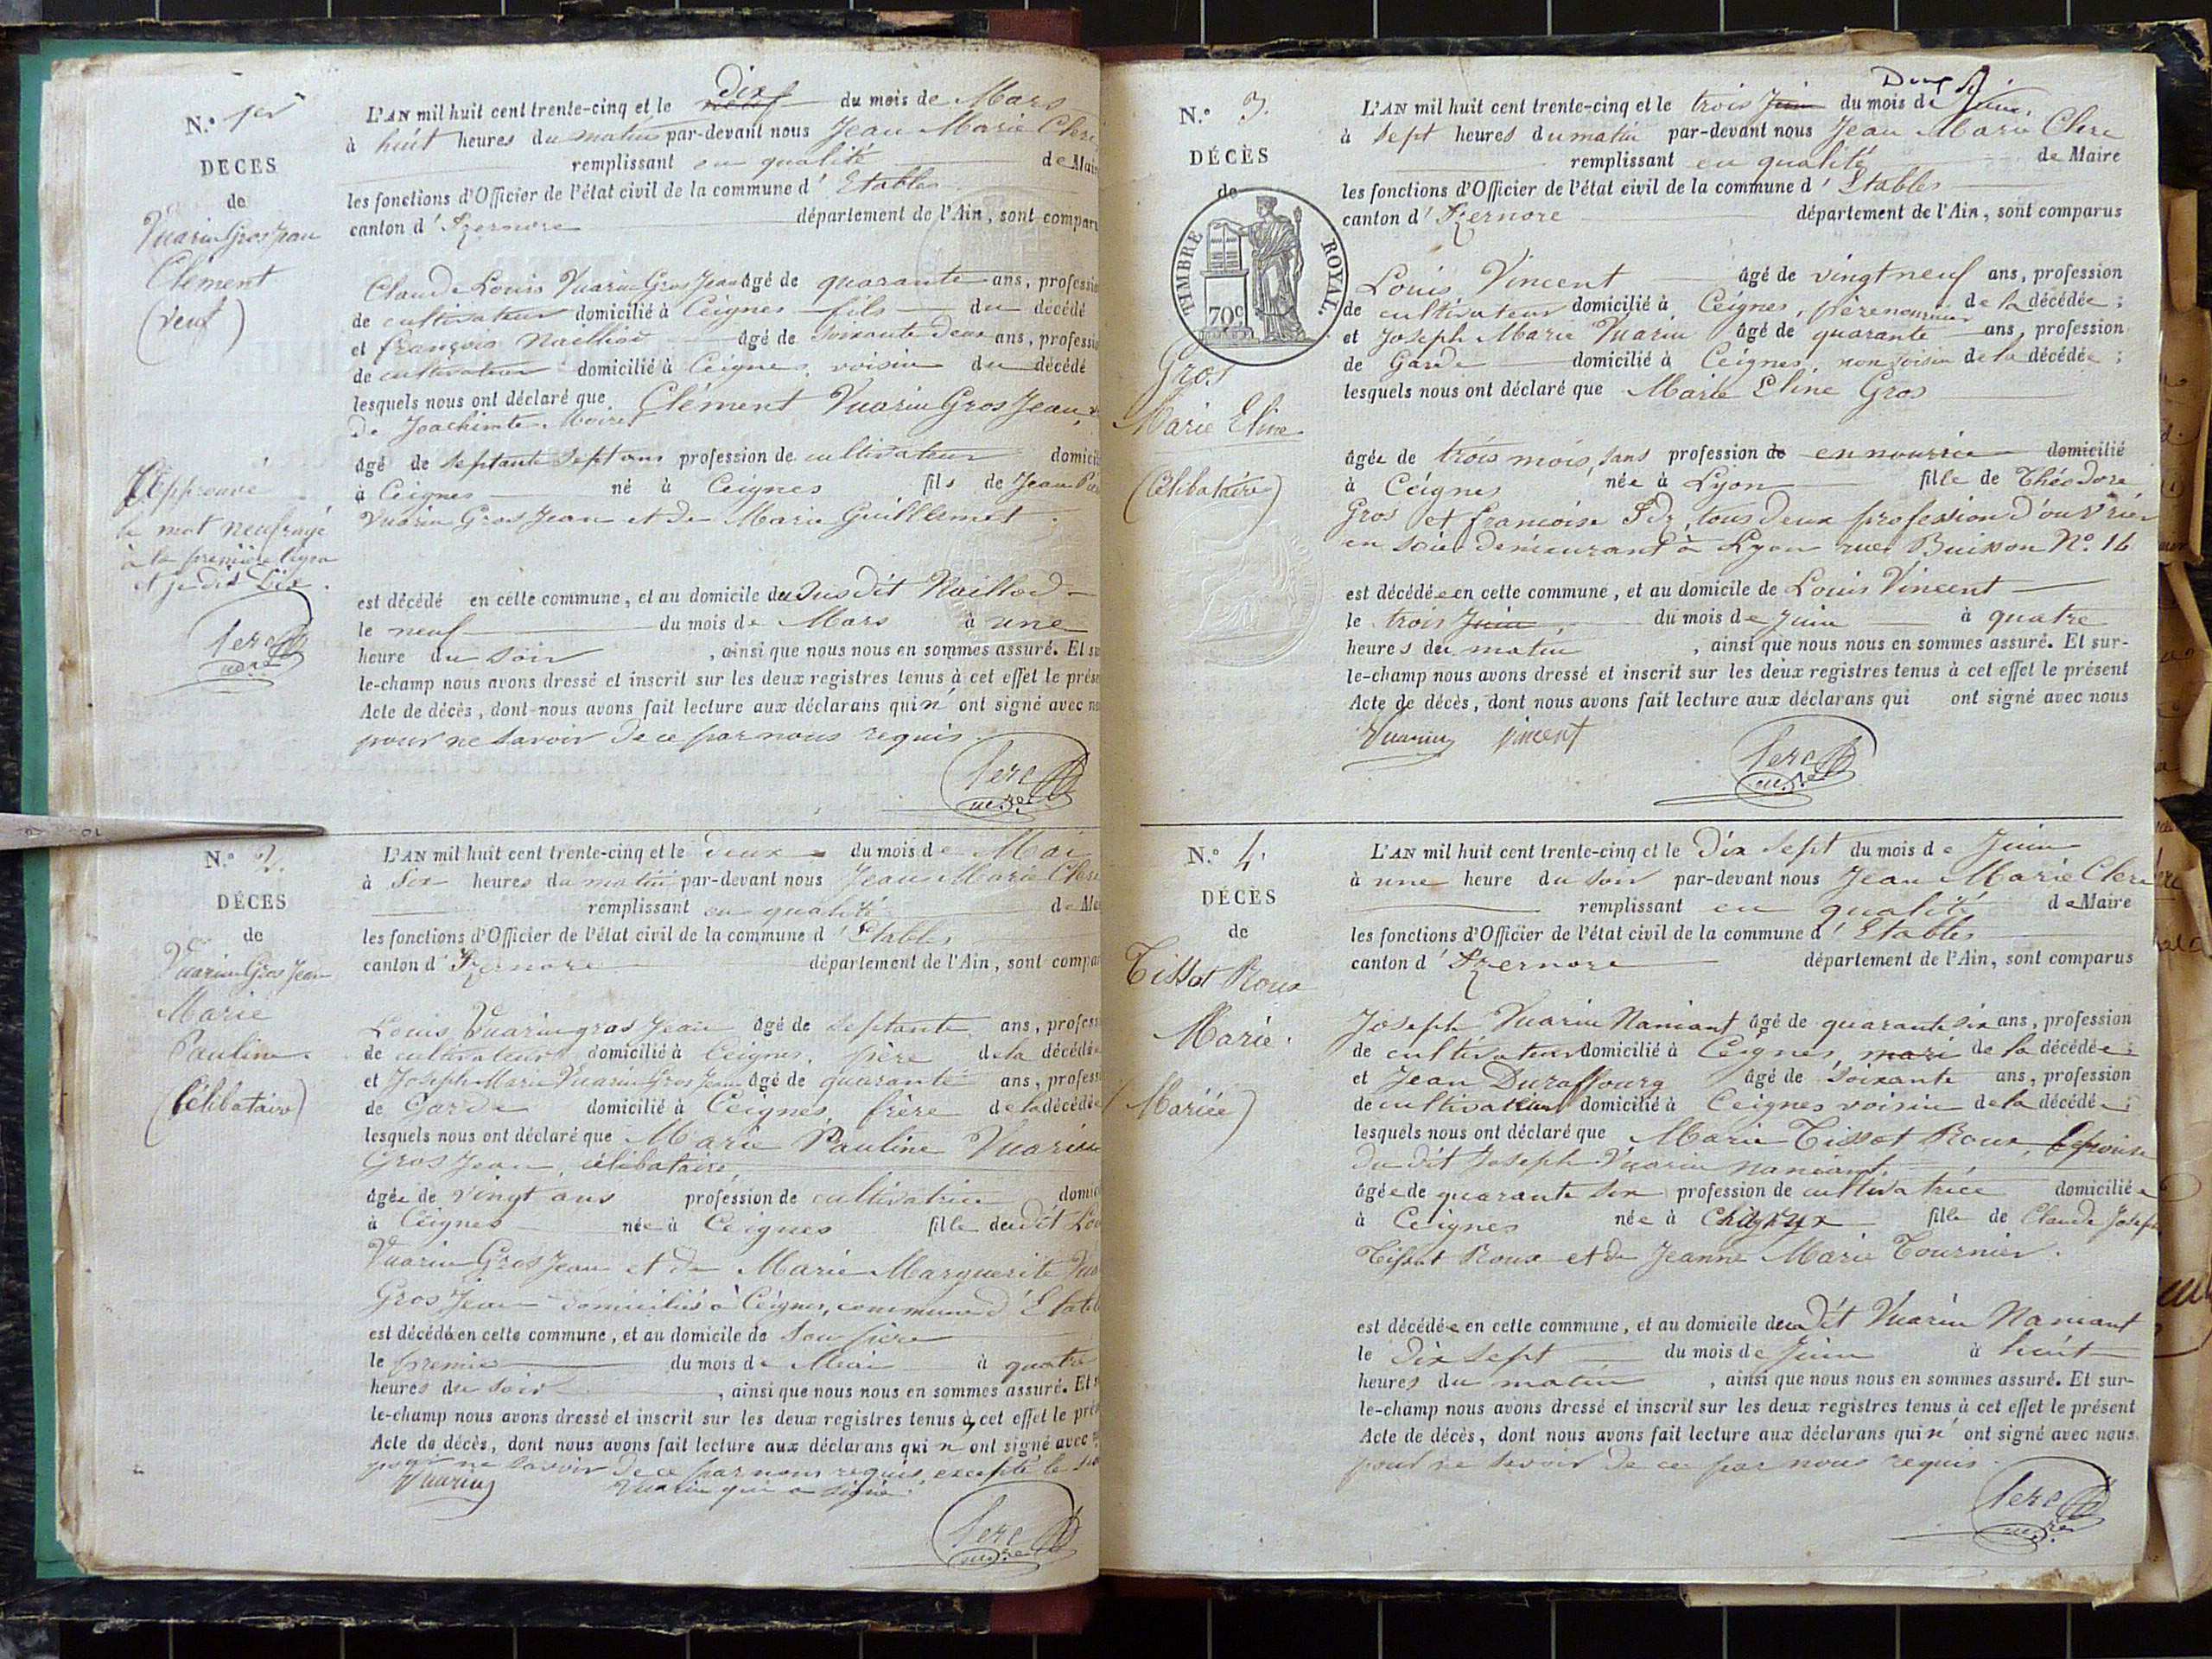 N.º 1er
DÉCÈS
de
Vuarin Gros Jean
Clément
(veuf)
Approuvé
le mot neuf rayé
à la première ligne
et je dis Dix.
Clerc
maire
L'AN mil huit cent trente-cinq et le neuf dix du mois de Mars
à huit heures du matin par-devant nous Jean Marie Clerc
remplissant en qualité de Mai
les fonctions d'Officier de l'état civil de la commune d'Etables
canton d'Izernore département de l'Ain, sont compar
Claude Louis Vuarin Gros Jean âgé de quarante ans, professio
de cultivateur domicilié à Ceignes fils du décédé
et françois Naillod âgé de soixante deux ans, professi
de cultivateur domicilié à Ceignes, voisin du décédé
lesquels nous ont déclaré que Clément Vuarin Gros Jean,
de Joachimte
âgé de septante sept ans profession de cultivateur domici
à Ceignes né à Ceignes fils de Jean
Vuarin Gros Jean et de Marie Guillermet.
est décédé en cette commune, et au domicile du susdit Naillod
le neuf du mois de Mars à une
heure du soir, ainsi que nous nous en sommes assuré. Et su
le-champ nous avons dressé et inscrit sur les deux registres tenus à cet effet le prése
Acte de décès, dont nous avons fait lecture aux déclarans qui n'ont signé avec no
pour ne savoir de ce par nous requis.
Clerc
maire
N.º 2.
DÉCÈS
de
Vuarin Gros Jean
Marie
Pauline.
(Célibataire)
L'AN mil huit cent trente-cinq et le deux du mois de Mai
à six heures du matin par-devant nous Jean Marie Cler
remplissant en qualité de Ma
les fonctions d'Officier de l'état civil de la commune d'Etables
canton d'Izernore département de l'Ain, sont compa
Louis Vuarin gros Jean âgé de septante ans, profess
de cultivateur domicilié à Ceignes, père de la décédée
et Joseph Marie Vuarin Gros Jean âgé de quarante ans, profess
de Garde domicilié à Ceignes, frère de la décédée
lesquels nous ont déclaré que Marie Pauline Vuarin
Gros Jean, célibataire
âgée de vingt ans profession de cultivatrice domic
à Ceignes née à Ceignes fille du dit Lou
Vuarin Gros Jean et de Marie Marguerite Vua
Gros Jean domiciliés à Ceignes, commune d'Etabl
est décédée en cette commune, et au domicile de son père
le premier du mois de Mai à quatre
heures du soir, ainsi que nous nous en sommes assuré. Et s
le-champ nous avons dressé et inscrit sur les deux registres tenus à cet effet le prés
Acte de décès, dont nous avons fait lecture aux déclarans qui n'ont signé avec n
pour ne savoir de ce par nous requis, excepté le
Vuarin qui a signé.
Vuarin
Clerc
maire
N.º 3.
DÉCÈS
de
TIMBRE ROYAL.
70c
Gros
Marie Eline.
(Célibataire)
L'AN mil huit cent trente-cinq et le trois Juin du mois de Juin
à sept heures du matin par-devant nous Jean Marie Clerc
remplissant en qualité de Maire
les fonctions d'Officier de l'état civil de la commune d'Etables
canton d'Izernore département de l'Ain, sont comparus
Louis Vincent âgé de vingt neuf ans, profession
de cultivateur domicilié à Ceignes, père nourricier de la décédée;
et Joseph Marie Vuarin âgé de quarante ans, profession
de Garde domicilié à Ceignes, non voisin de la décédée;
lesquels nous ont déclaré que Marie Eline Gros
âgée de trois mois, sans profession de en nourrice domicilié
à Ceignes née à Lyon fille de Théodore
Gros et françoise, tous deux profession d'ouvrier
en soie demeurant à Lyon rue Buisson Nº 16
est décédée en cette commune, et au domicile de Louis Vincent
le trois Juin du mois de Juin à quatre
heures du matin, ainsi que nous nous en sommes assuré. Et sur-
le-champ nous avons dressé et inscrit sur les deux registres tenus à cet effet le présent
Acte de décès, dont nous avons fait lecture aux déclarans qui ont signé avec nous
Vuarin vincent
Clerc
maire
N.º 4.
DÉCÈS
de
Tissot Roux
Marie.
(Mariée)
L'AN mil huit cent trente-cinq et le Dix sept du mois de Juin
à une heure du soir par-devant nous Jean Marie Clerc
remplissant en qualité de Maire
les fonctions d'Officier de l'état civil de la commune d'Etables
canton d'Izernore département de l'Ain, sont comparus
Joseph Vuarin Naniant âgé de quarante six ans, profession
de cultivateur domicilié à Ceignes, mari de la décédée;
et Jean Duraffourg âgé de soixante ans, profession
de cultivateur domicilié à Ceignes voisin de la décédée;
lesquels nous ont déclaré que Marie Tissot Roux, Epouse
du dit Joseph Vuarin Naniant.
âgée de quarante six profession de cultivatrice domiciliée
à Ceignes née à Chagryx fille de Claude Joseph
Tissot Roux et de Jeanne Marie Tournier.
est décédée en cette commune, et au domicile du dit Vuarin Naniant
le Dix sept du mois de Juin à huit
heures du matin, ainsi que nous nous en sommes assuré. Et sur-
le-champ nous avons dressé et inscrit sur les deux registres tenus à cet effet le présent
Acte de décès, dont nous avons fait lecture aux déclarans qui n'ont signé avec nous.
pour ne savoir de ce par nous requis.
Clerc
maire